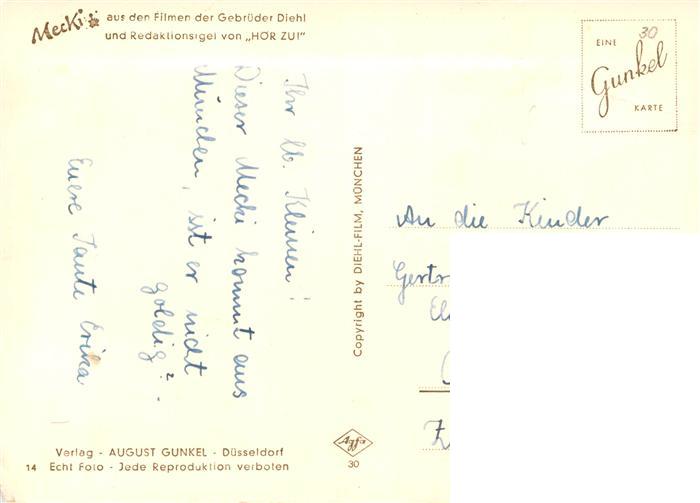 Mecki aus den Filmen der Gebrüder Diehl
und Redaktionsigel von „HÖR ZU!"
30
EINE
Gunkel
KARTE
Ihr lb. Kleinen!
Dieser Mecki kommt aus
München, ist er nicht
goldig? -
Euere Tante Erika
Copyright by DIEHL-FILM, MÜNCHEN
An die Kinder
Gertr
Agfa
30
Verlag - AUGUST GUNKEL - Düsseldorf
14 Echt Foto - Jede Reproduktion verboten